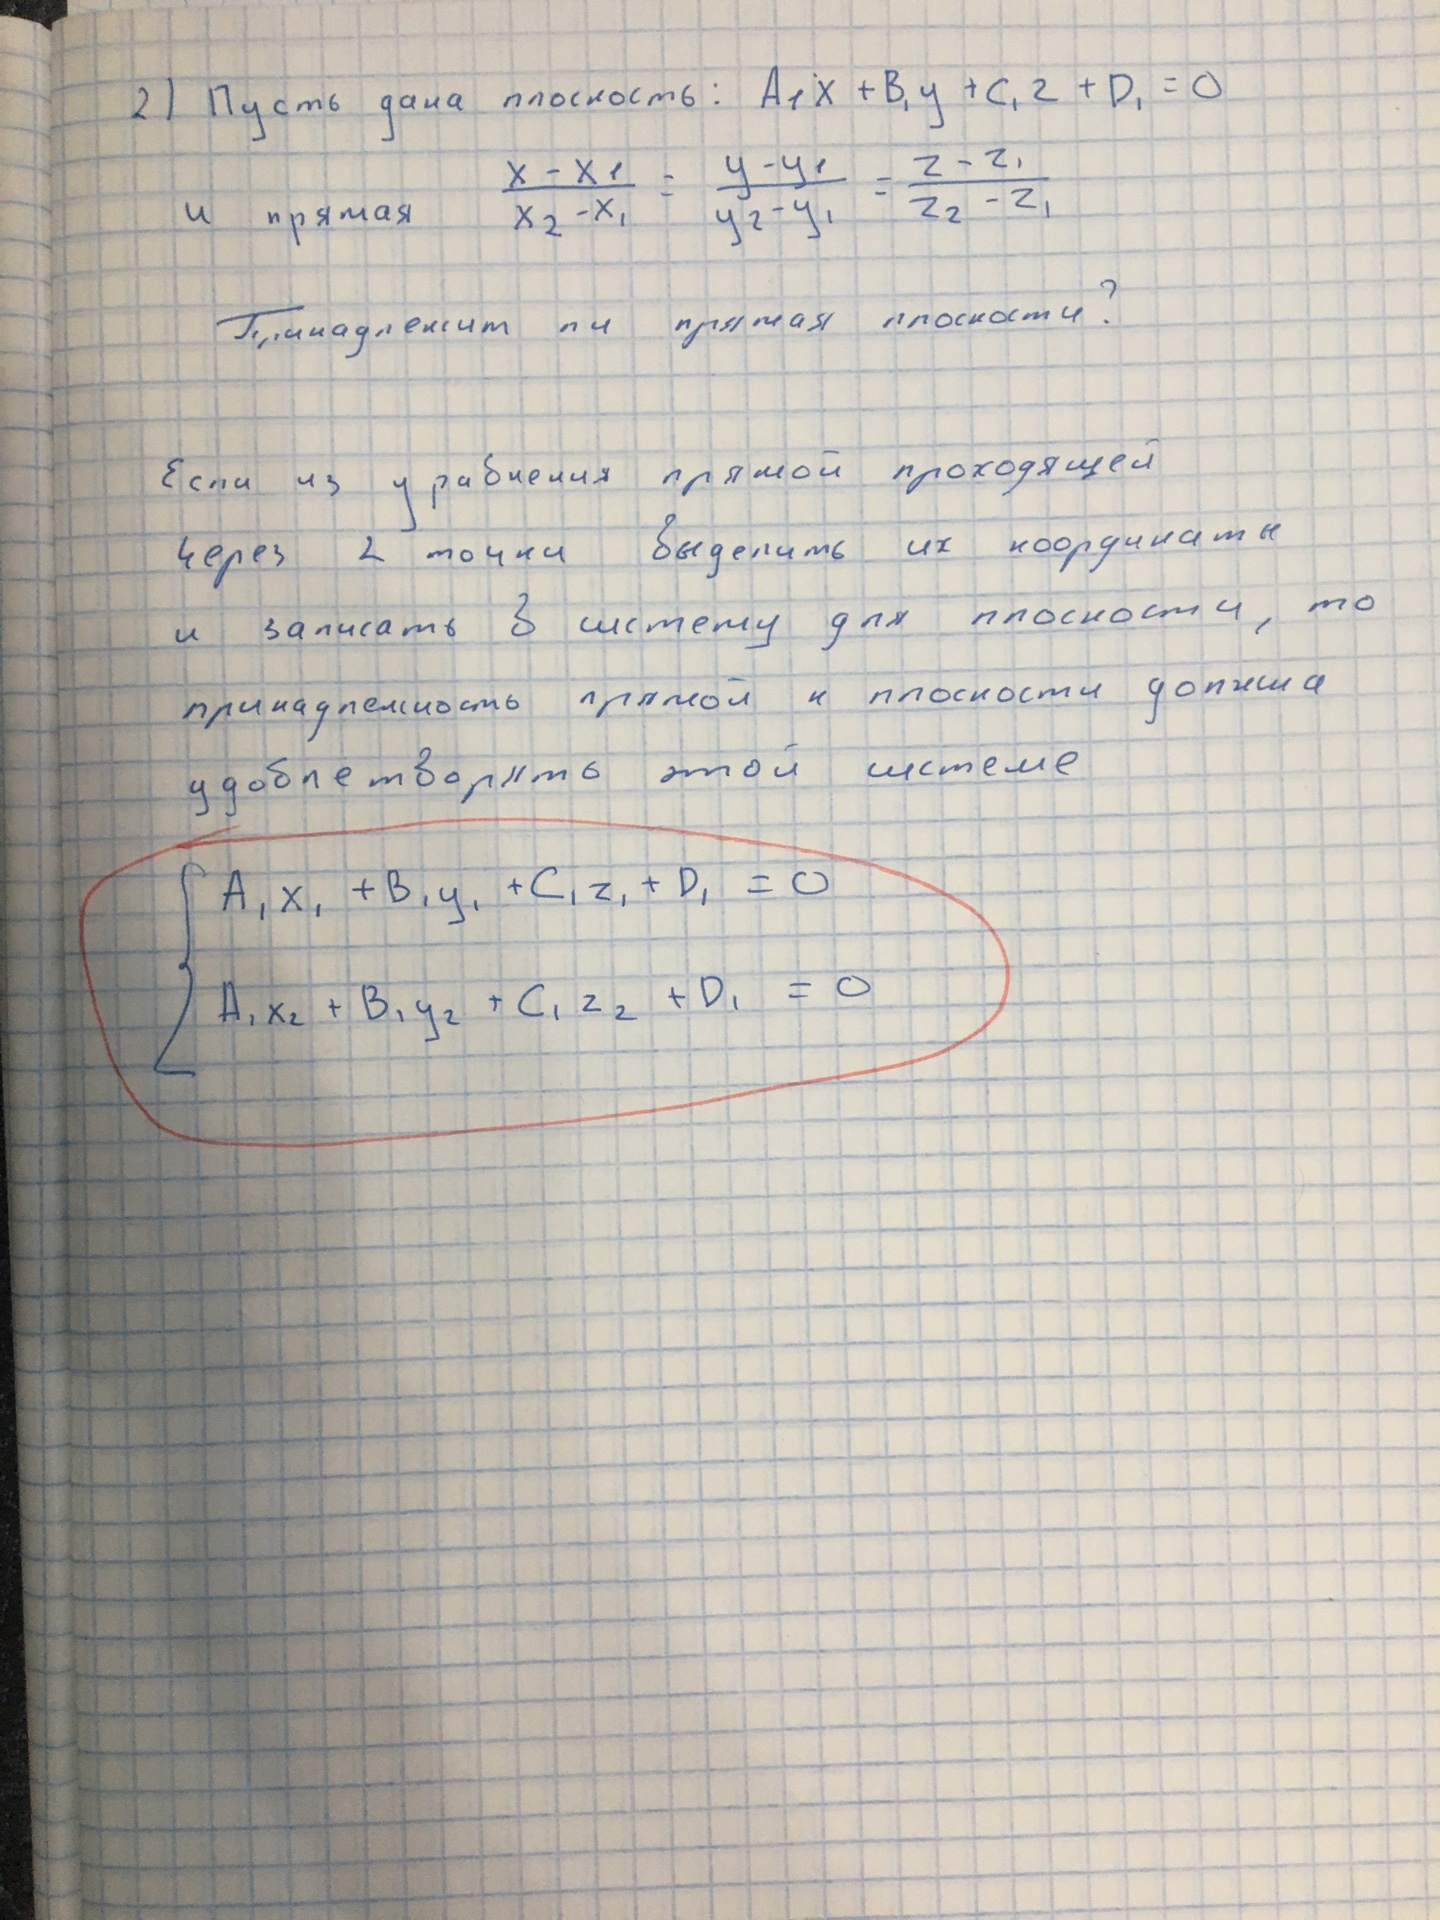 2) Пусть дана плоскость: A₁x + B₁y + C₁z + D₁ = 0
и прямая (x - x₁)/(x₂ - x₁) = (y - y₁)/(y₂ - y₁) = (z - z₁)/(z₂ - z₁)
Принадлежит ли прямая плоскости?
Если из уравнения прямой проходящей
через 2 точки выделить их координаты
и записать в систему для плоскости, то
принадлежность прямой к плоскости должна
удовлетворять этой системе
{ A₁x₁ + B₁y₁ + C₁z₁ + D₁ = 0
A₁x₂ + B₁y₂ + C₁z₂ + D₁ = 0